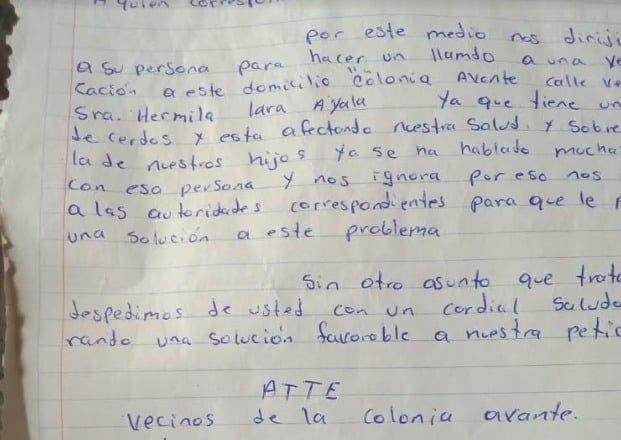 A quien corresp
por este medio nos diriji
a su persona para hacer un llamdo a una ve
cación a este domicilio "colonia Avante calle
Sra. Hermila lara Ayala Ya que tiene un
de cerdos y esta afectando nuestra Salud. y Sobre
la de nuestros hijos ya se ha hablado mucha
con esa persona y nos ignora por eso nos
a las autoridades correspondientes para que le
una Solución a este problema
Sin otro asunto que trata
despedimos de usted con un cordial Saludo
rando una solución favorable a nuestra petic
ATTE
Vecinos de la Colonia avante.